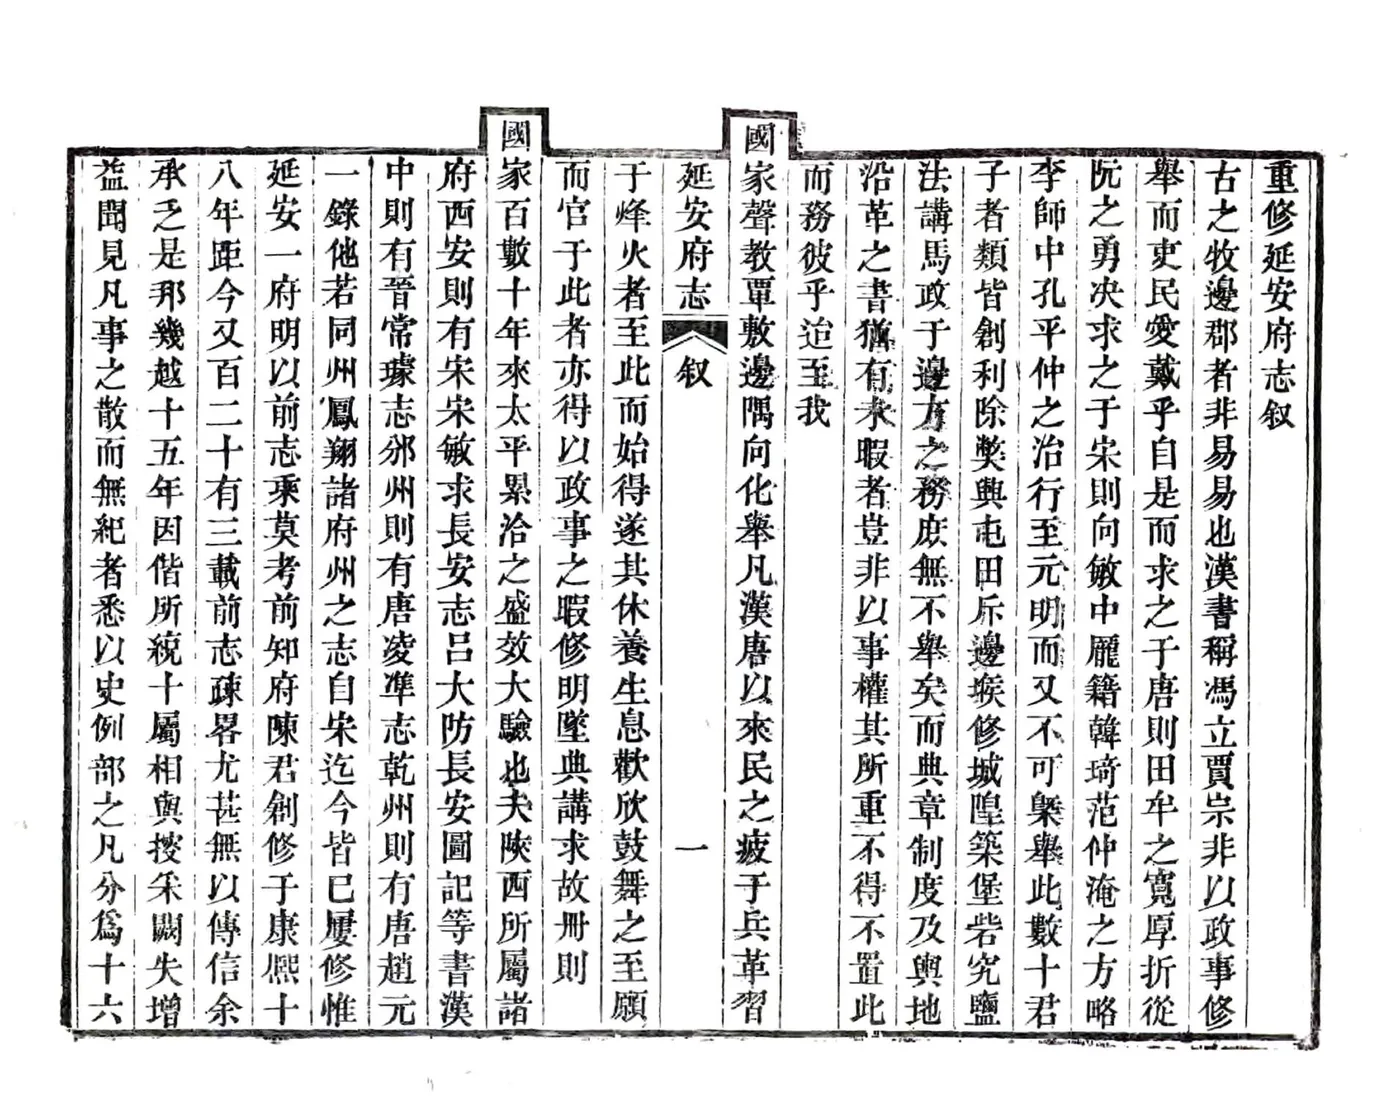 重修延安府志叙
古之牧邊郡者非易易也漢書稱馮立賈宗非以政事修
舉而吏民愛戴乎自是而求之于唐則田牟之寬厚折從
阮之勇決求之于宋則向敏中龎籍韓琦范仲淹之方略
李師中孔平仲之治行至元明而又不可槩舉此數十君
子者類皆創利除獘興屯田斥邊堠修城隍築堡砦究鹽
法講馬政于邊方之務庶無不舉矣而典章制度及輿地
沿革之書猶有未暇者豈非以事權其所重不得不置此
而務彼乎迨至我
國家聲教覃敷邊隅向化舉凡漢唐以來民之疲于兵革習
延安府志 叙 一
于烽火者至此而始得遂其休養生息歡欣鼓舞之至願
而官于此者亦得以政事之暇修明墜典講求故冊則
國家百數十年來太平累洽之盛效大驗也夫陝西所屬諸
府西安則有宋宋敏求長安志呂大防長安圖記等書漢
中則有晉常璩志邠州則有唐凌凖志乾州則有唐趙元
一錄他若同州鳳翔諸府州之志自宋迄今皆已屢修惟
延安一府明以前志乘莫考前知府陳君創修于康熙十
八年距今又百二十有三載前志疎畧尤甚無以傳信余
承乏是邦幾越十五年因偕所統十屬相與搜采闕失增
益聞見凡事之散而無紀者悉以史例部之凡分為十六